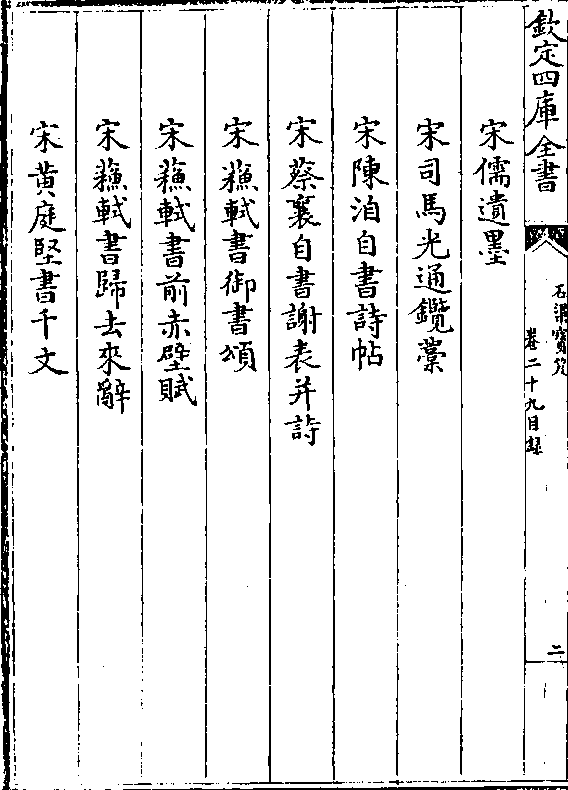 欽定四庫全書
石渠寶笈
卷二十九目録
二
宋儒遺墨
宋司馬光通鑑藁
宋陳洎自書詩帖
宋蔡襄自書謝表并詩
宋蘓軾書御書頌
宋蘓軾書前赤壁賦
宋蘓軾書歸去來辭
宋黄庭堅書千文